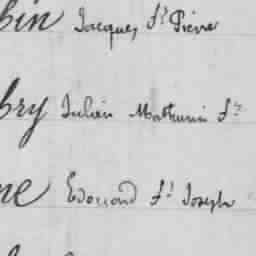 bin Jacques St Pierre
bry Julien Mathurin St
ne Edouard St Joseph